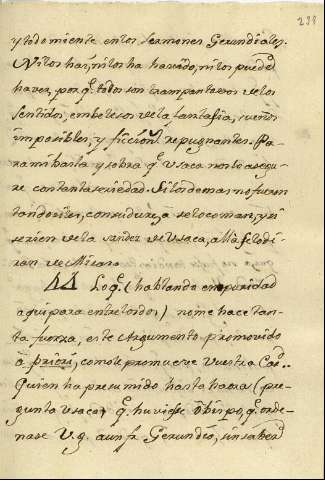 239
y todo miente en los sermones Gerundiales.
Ni los hai, ni los ha havido, ni los puede
haver, por q.e todos son trampantoxos de los
sentidos, embelesos de la fantasia, sueños
imposibles, y ficciones repugnantes. Pa-
ra mi basta y sobra q.e Usaca nos lo asegu-
re con tanta seriedad. Si los demas no fueren
tan doziles, con su dureza se lo coman, y si
se rien de la sandez de Usaca, alla se lo di-
ran de Misas.
44 Lo q.e (hablando en puridad
aqui para entre los dos) no me hace tan-
ta fuerza, es te Argumento promovido
à priori, como le promueve Vuestra Car.d
Quien ha presumido hasta haora (pre-
gunta Usaca) q.e huviese Obispo, q.e orde-
nase V.g. a un fr. Gerundio, sin saber